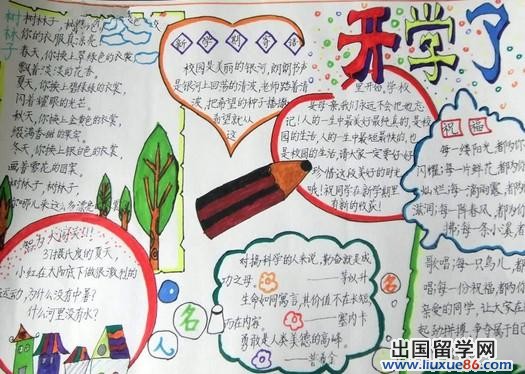 开学了
树林子
树林子，树林子，
你的衣服真漂亮
春天，你换上翠绿的衣裳
飘着淡淡的花香。
夏天，你换上
闪着耀眼的光芒。
秋天，你换上金黄的衣裳
冬天，你换上银白的衣裳
画着雪花的图案。
树林子，树林子，
新学期寄语
校园是美丽的银河，朗朗书声
是银河上回荡的清波，老师踏着清
波，把希望的种子播撒
希望就从
这
里开始。学校
是母亲，我们永远不会忘
记！人的一生中最美好最纯真的，是校
园的生活，人的一生中最短最快的，也
是校园的生活，请大家一定要好好
珍惜这段美好的时光
哦！祝同学在新学期里
有新的收获！
祝福
每一缕阳光，都为你
闪耀；每一片鲜花，都为你
灿烂；每一滴雨露，都为你
滋润；每一阵春风，都为你
拂；每一条小溪，都
歌唱；每一只鸟儿，都
唱；每一份祝福，都为你
亲爱的同学，让大家在
起努力拼搏，争夺属于自己
智力大冲关！！！
37摄氏度的夏天，
小红在太阳底下做很激烈的
运动，为什么没有中暑？
什么河里没有水？
名人名
对搞科学的人来说，勤奋就是成
功之母。——茅以升
生命如同寓言，其价值不在长短，
而在内容。——塞内卡
勇敢是人类美德的高峰。
——普希金
出国留学网
www.liuxue86.com